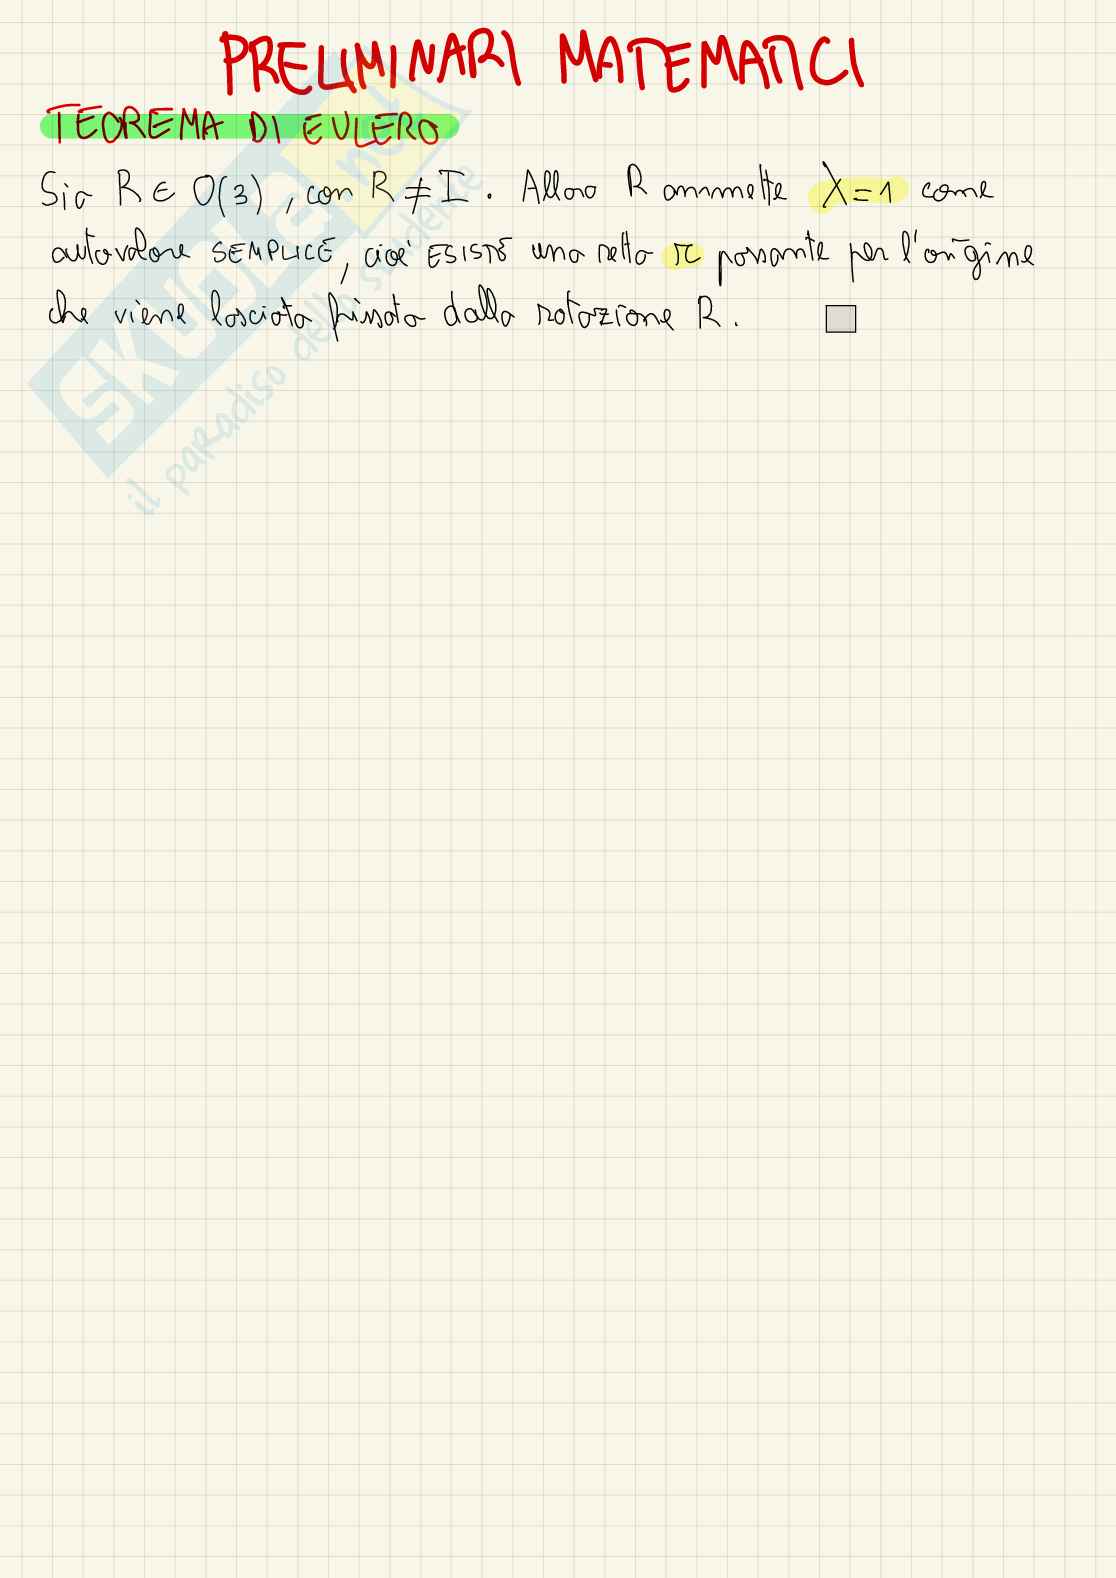 PRELIMINARI MATEMATICI
TEOREMA DI EULERO
Sia R ∈ O(3), con R ≠ I. Allora R ammette λ=1 come
autovalore SEMPLICE, cioè ESISTE una retta π passante per l'origine
che viene lasciata fissata dalla rotazione R.
SKUOLA.net
il paradiso dello studente